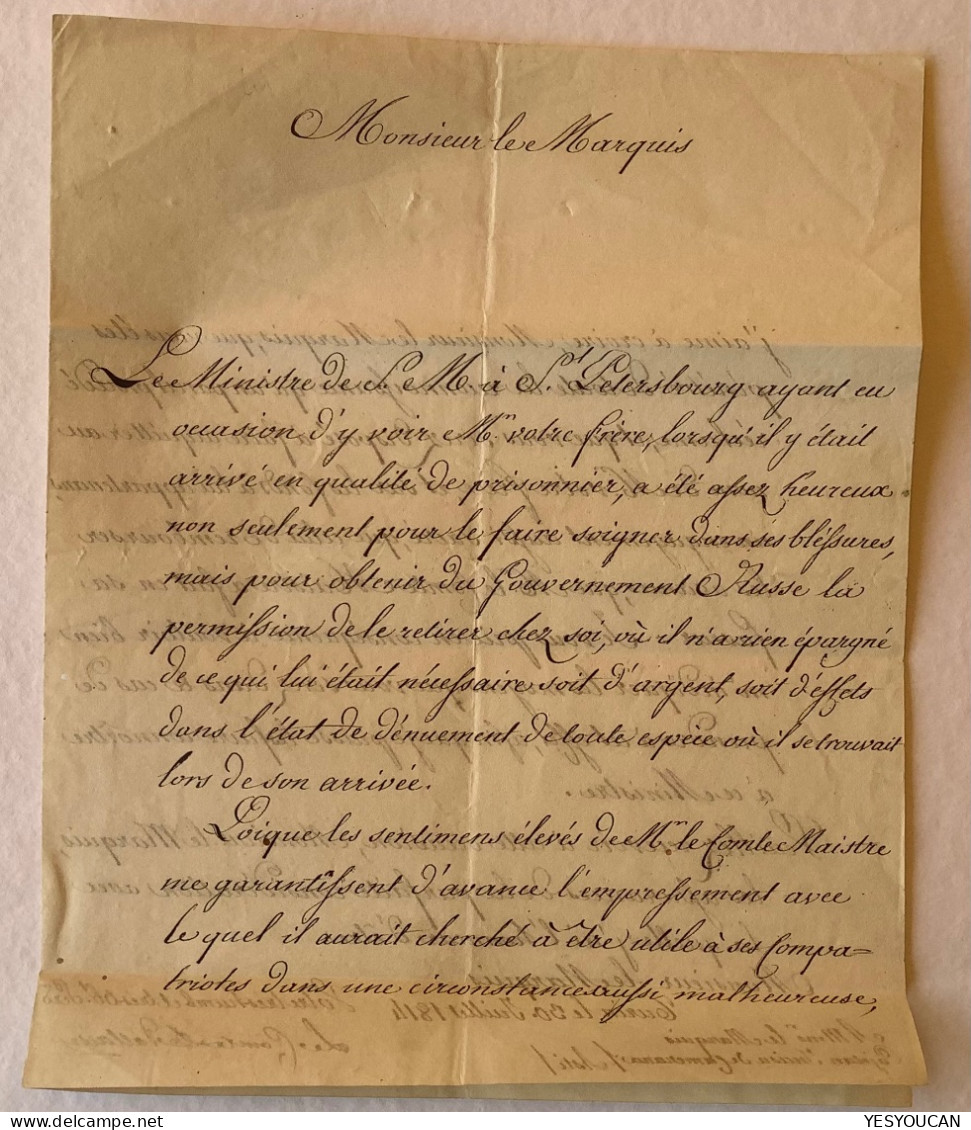 Monsieur le Marquis
Le Ministre de S. M. à S.t Petersbourg ayant eu
occasion d'y voir M.r votre frère, lorsqu'il y était
arrivé en qualité de prisonnier, a été assez heureux
non seulement pour le faire soigner dans ses bléssures,
mais pour obtenir du Gouvernement Russe la
permission de le retirer chez soi, où il n'a rien épargné
de ce qui lui était nécessaire soit d'argent, soit d'effets
dans l'état de dénuement de toute espèce où il se trouvait
lors de son arrivée.
Quoique les sentimens élevés de M.r le Comte Maistre
me garantissent d'avance l'empressement avec
le quel il aurait cherché à être utile à ses Compa=
triotes dans une circonstance aussi malheureuse,
YESYOUCAN